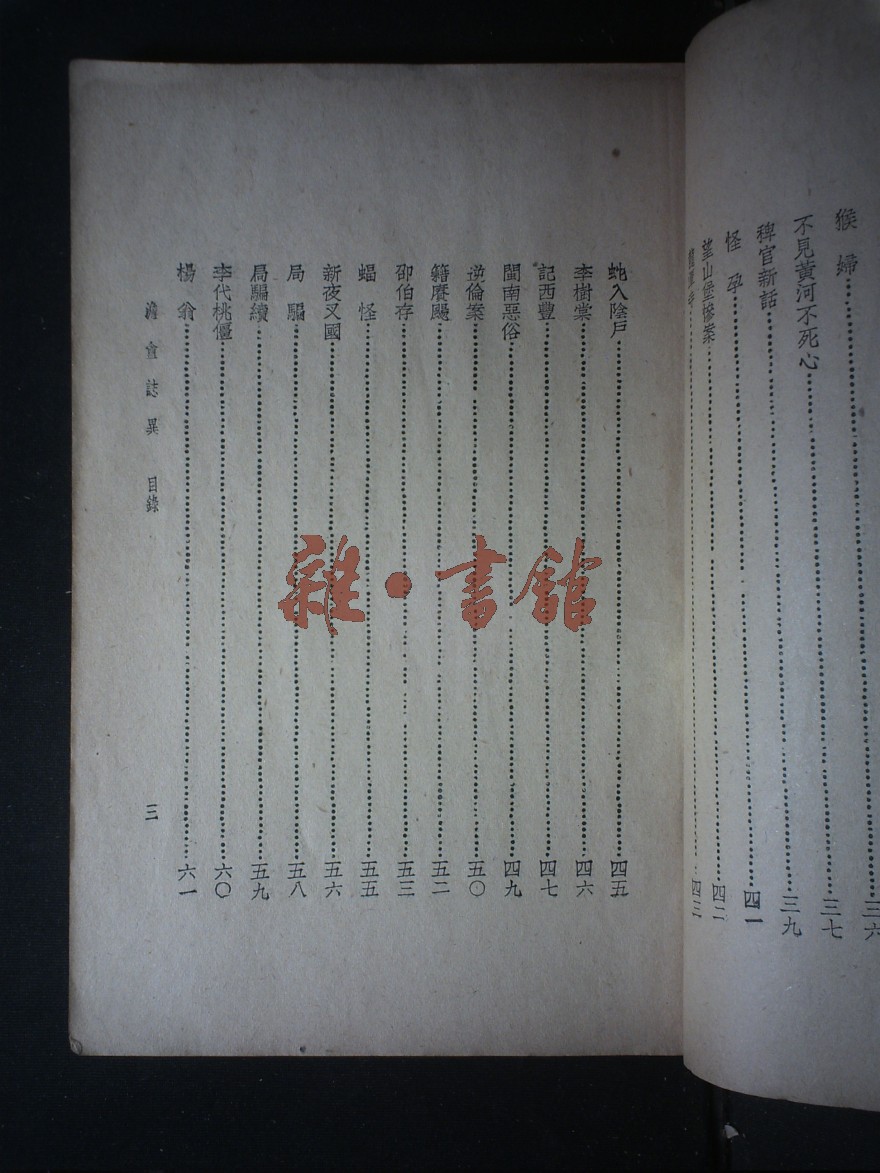 猴婦……三六
不見黃河不死心……三七
稗官新話……三九
怪孕……四一
望山堡慘案……四二
……四三
虵入陰戶……四五
李樹棠……四六
記西豐……四七
閩南惡俗……四九
逆倫案……五〇
籍賡颺……五二
邵伯存……五三
蝠怪……五五
新夜叉國……五六
局騙……五八
局騙續……五九
李代桃僵……六〇
楊翁……六一
澹盦誌異 目錄 三
雜·書館